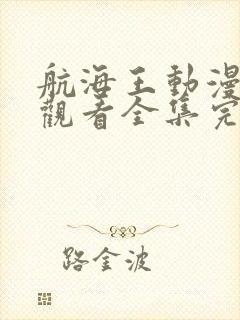 航海王動漫
觀看全集完
路金波